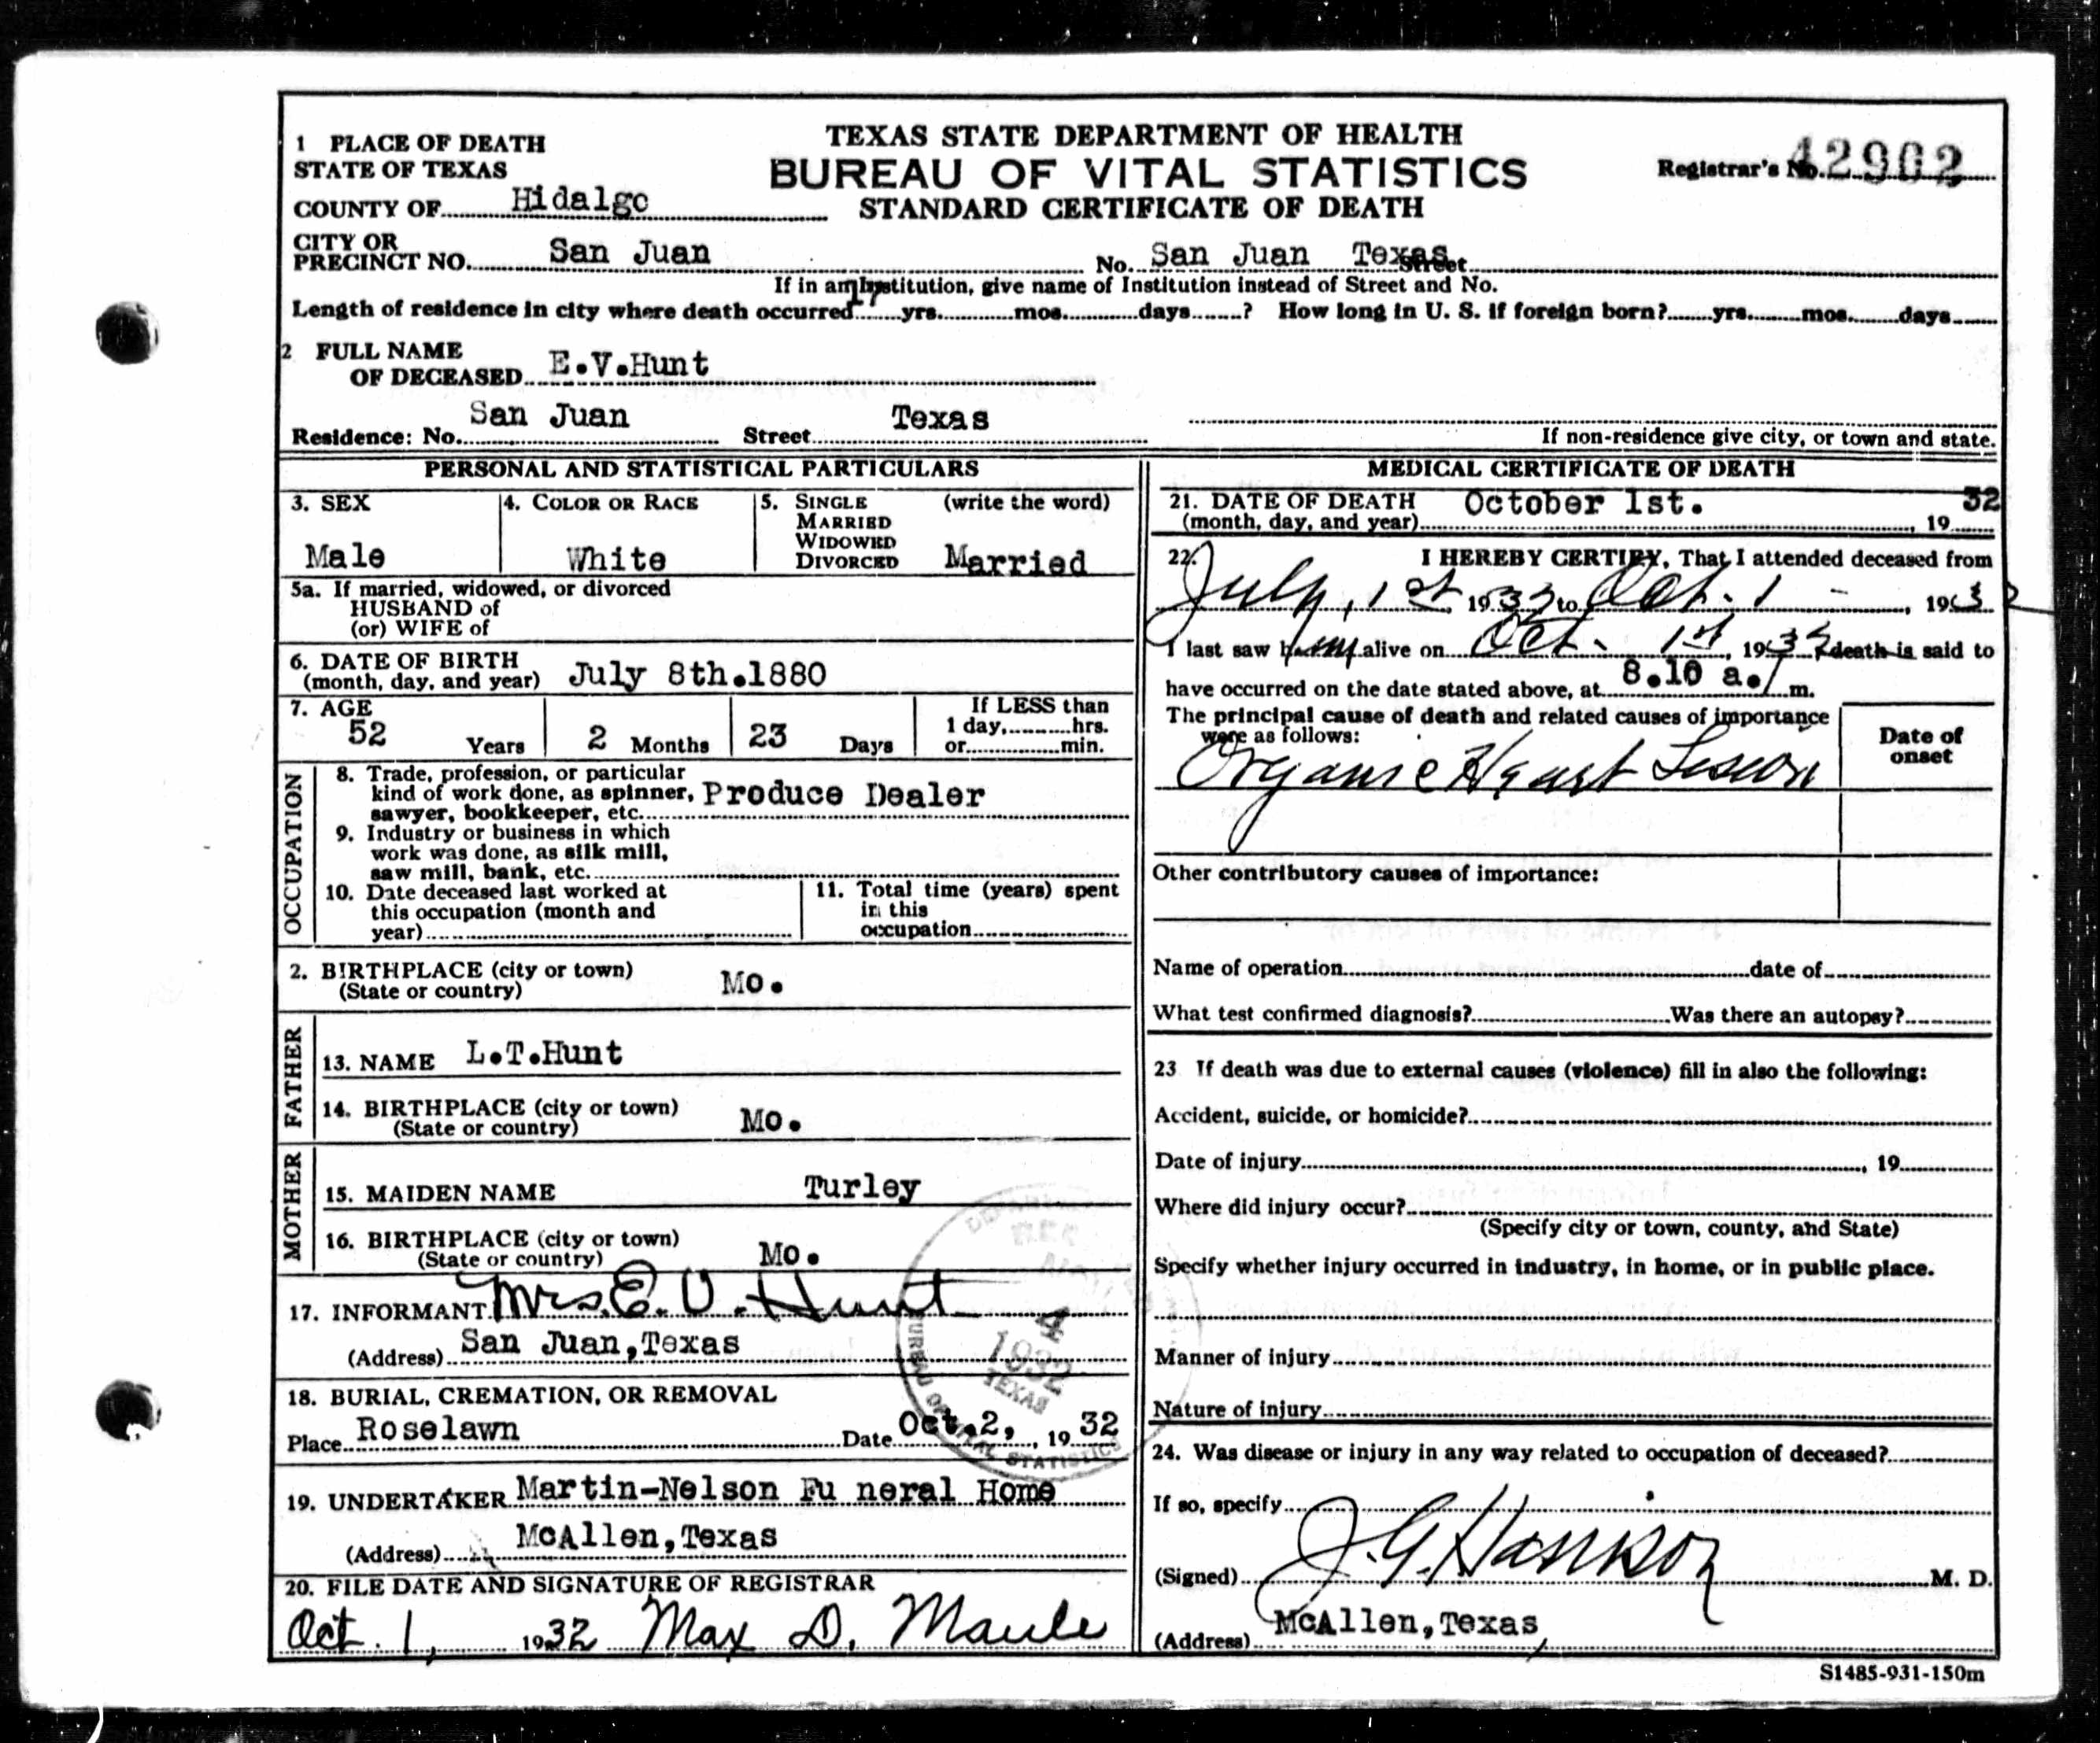 1 PLACE OF DEATH
STATE OF TEXAS
COUNTY OF Hidalgo
TEXAS STATE DEPARTMENT OF HEALTH
BUREAU OF VITAL STATISTICS
STANDARD CERTIFICATE OF DEATH
Registrar's No. 42902
CITY OR
PRECINCT NO. San Juan No. San Juan Texas Street
If in an Institution, give name of Institution instead of Street and No.
Length of residence in city where death occurred 17 yrs. mos. days ? How long in U. S. if foreign born? yrs. mos. days
2 FULL NAME
OF DECEASED E.V.Hunt
Residence: No. San Juan Street Texas
If non-residence give city, or town and state.
PERSONAL AND STATISTICAL PARTICULARS
3. SEX
Male
4. COLOR OR RACE
White
5. SINGLE
MARRIED
WIDOWED
DIVORCED
(write the word)
Married
5a. If married, widowed, or divorced
HUSBAND of
(or) WIFE of
6. DATE OF BIRTH
(month, day, and year) July 8th.1880
7. AGE
52 Years 2 Months 23 Days
If LESS than
1 day, hrs.
or min.
OCCUPATION
8. Trade, profession, or particular
kind of work done, as spinner, Produce Dealer
sawyer, bookkeeper, etc.
9. Industry or business in which
work was done, as silk mill,
saw mill, bank, etc.
10. Date deceased last worked at
this occupation (month and
year)
11. Total time (years) spent
in this
occupation
2. BIRTHPLACE (city or town)
(State or country) Mo.
FATHER
13. NAME L.T.Hunt
14. BIRTHPLACE (city or town)
(State or country) Mo.
MOTHER
15. MAIDEN NAME Turley
16. BIRTHPLACE (city or town)
(State or country) Mo.
17. INFORMANT Mrs. E. V. Hunt
(Address) San Juan,Texas
18. BURIAL, CREMATION, OR REMOVAL
Place Roselawn Date Oct.2, 19 32
19. UNDERTAKER Martin-Nelson Fu neral Home
(Address) McAllen,Texas
20. FILE DATE AND SIGNATURE OF REGISTRAR
Oct. 1, 1932 Max D. Maule
4
1932
TEXAS
BUREAU OF VITAL STATISTICS
MEDICAL CERTIFICATE OF DEATH
21. DATE OF DEATH October 1st. 32
(month, day, and year) , 19
22. I HEREBY CERTIFY, That I attended deceased from
July, 1st 1932 to Oct. 1 , 1932
I last saw him alive on Oct. 1st, 1932, death is said to
have occurred on the date stated above, at 8.10 a. m.
The principal cause of death and related causes of importance
were as follows:
Date of
onset
Organic Heart Lesion
Other contributory causes of importance:
Name of operation date of
What test confirmed diagnosis? Was there an autopsy?
23 If death was due to external causes (violence) fill in also the following:
Accident, suicide, or homicide?
Date of injury , 19
Where did injury occur?
(Specify city or town, county, and State)
Specify whether injury occurred in industry, in home, or in public place.
Manner of injury
Nature of injury
24. Was disease or injury in any way related to occupation of deceased?
If so, specify
(Signed) J. G. Harrison M. D.
(Address) McAllen,Texas
S1485-931-150m